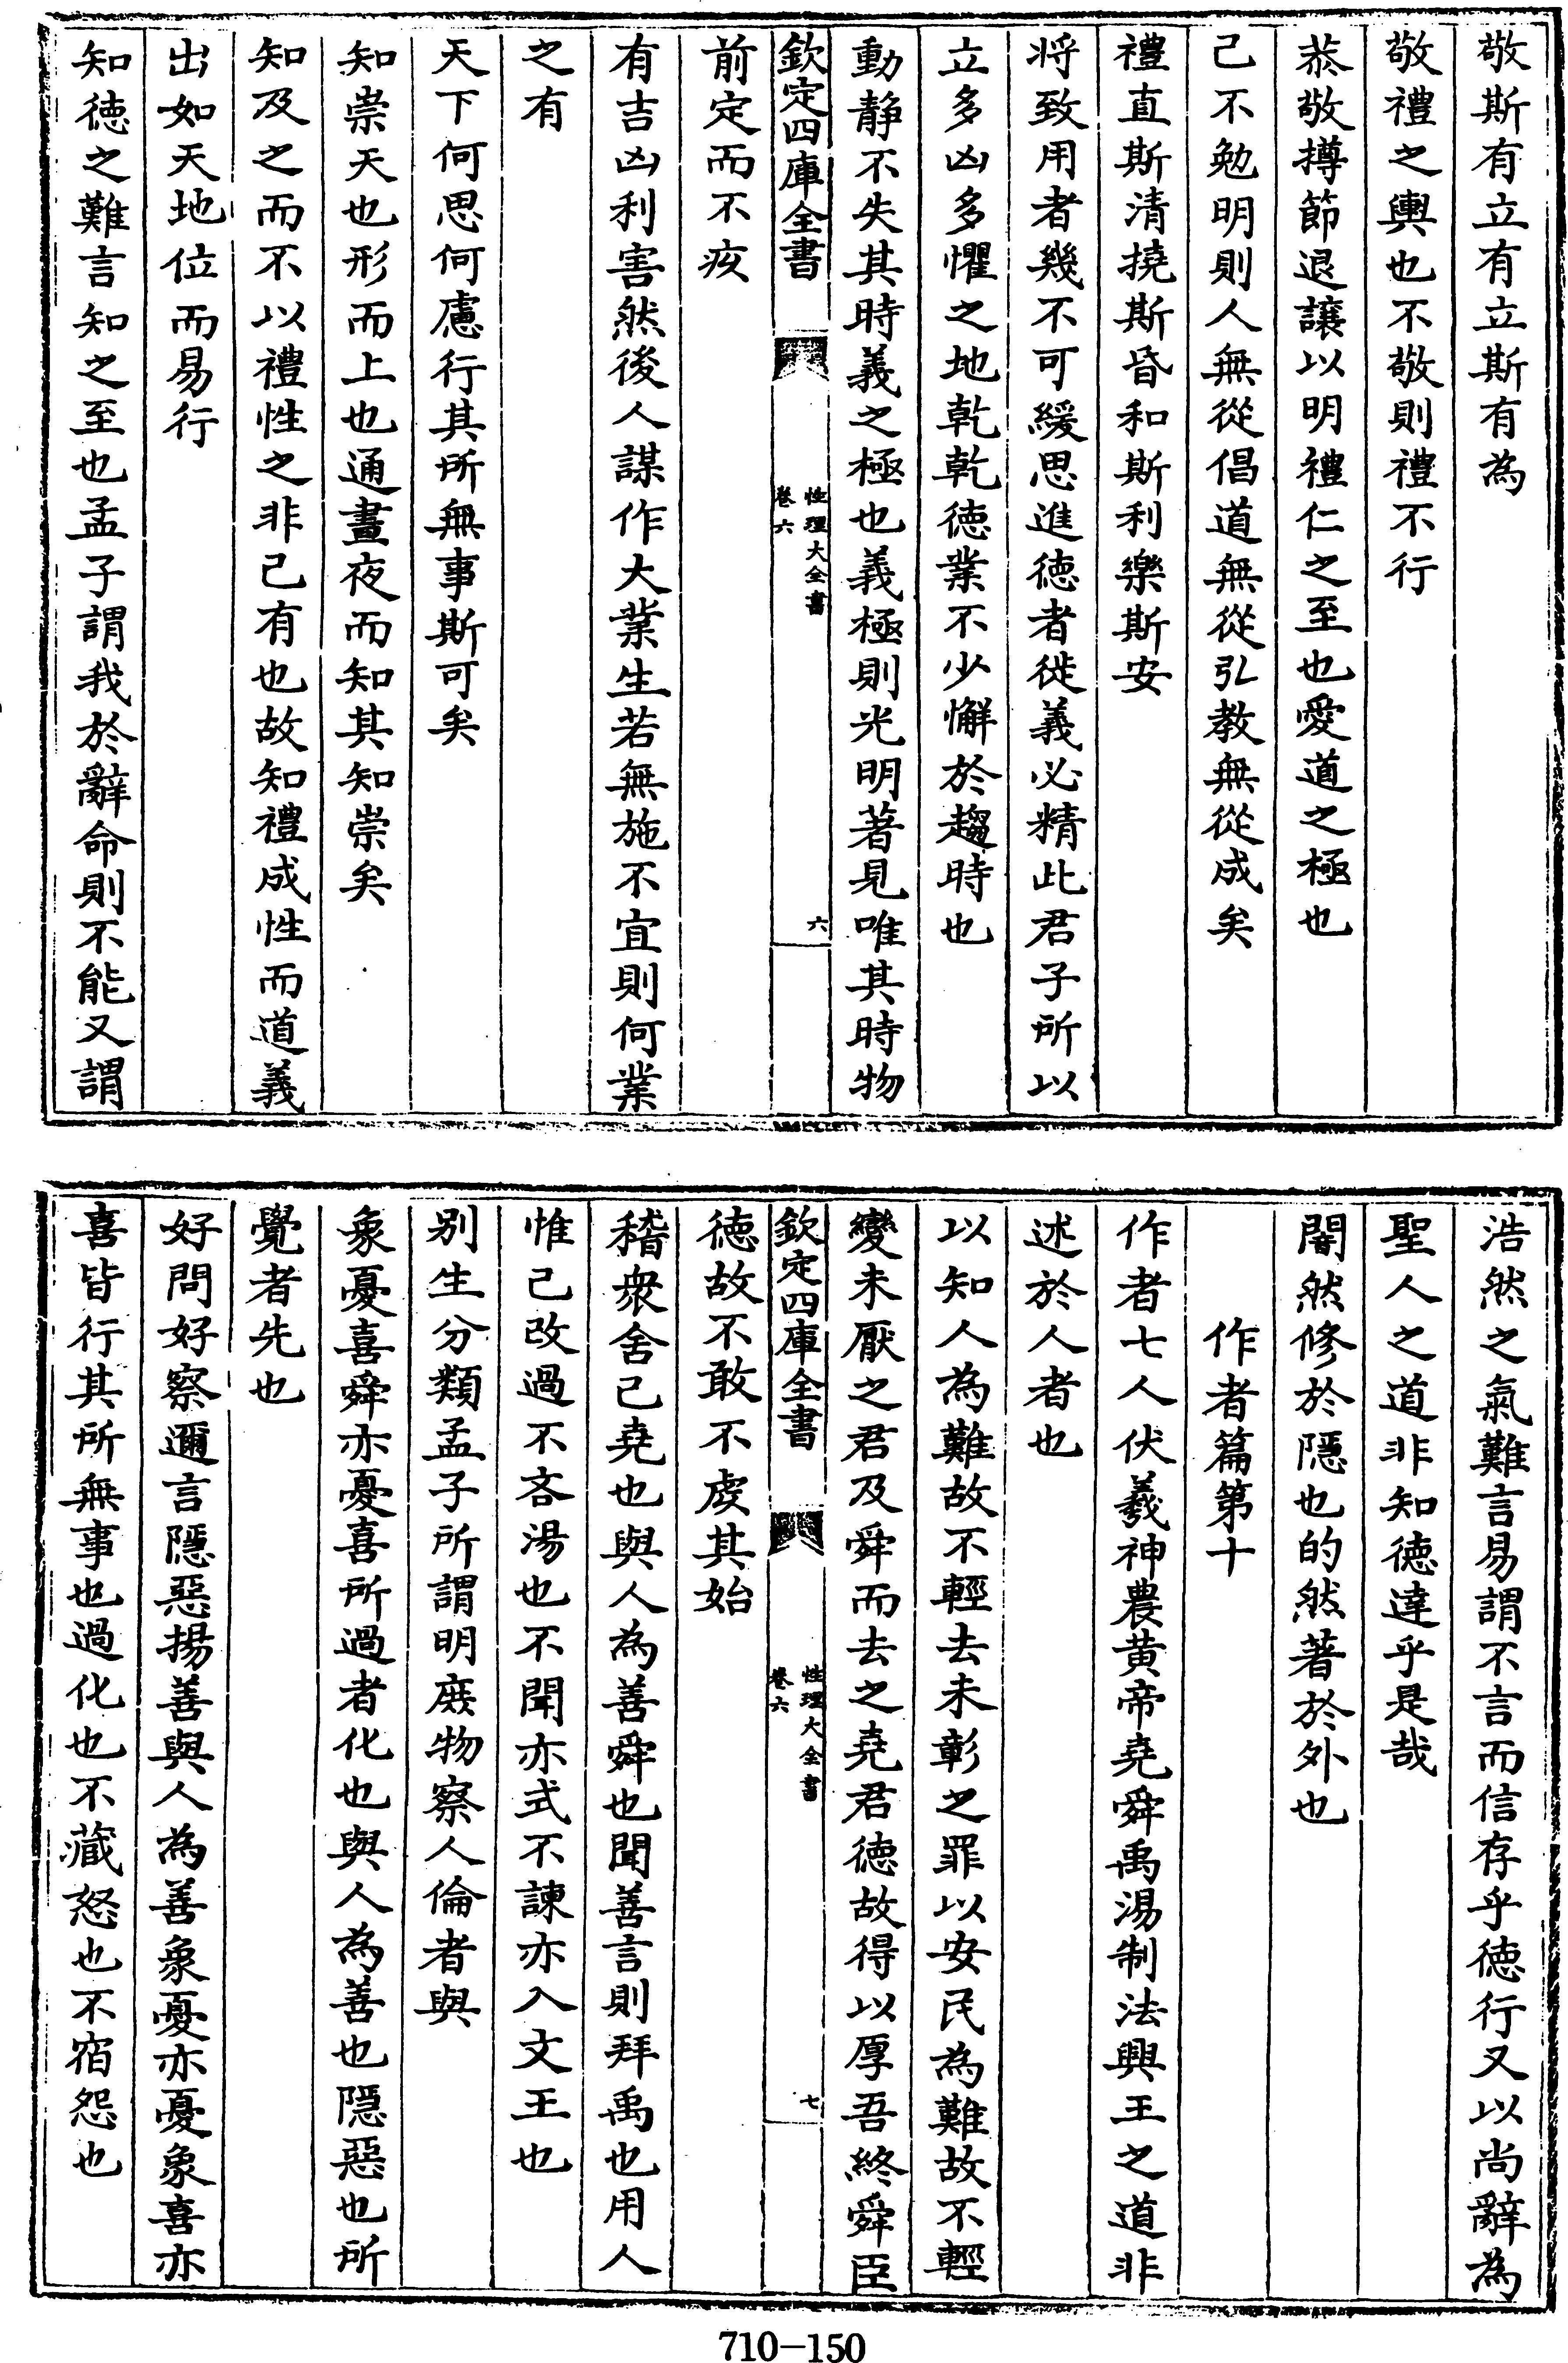 敬斯有立有立斯有為
敬禮之輿也不敬則禮不行
恭敬撙節退讓以明禮仁之至也愛道之極也
己不勉明則人無從倡道無從弘教無從成矣
禮直斯清撓斯昏和斯利樂斯安
將致用者幾不可緩思進徳者徙義必精此君子所以
立多凶多懼之地乾乾徳業不少懈於趨時也
動靜不失其時義之極也義極則光明著見唯其時物
欽定四庫全書
性理大全書
卷六
六
前定而不疚
有吉凶利害然後人謀作大業生若無施不宜則何業
之有
天下何思何慮行其所無事斯可矣
知崇天也形而上也通晝夜而知其知崇矣
知及之而不以禮性之非己有也故知禮成性而道義
出如天地位而易行
知徳之難言知之至也孟子謂我於辭命則不能又謂
浩然之氣難言易謂不言而信存乎徳行又以尚辭為
聖人之道非知徳達乎是哉
闇然修於隱也的然著於外也
作者篇第十
作者七人伏羲神農黄帝堯舜禹湯制法興王之道非
述於人者也
以知人為難故不輕去未彰之罪以安民為難故不輕
變未厭之君及舜而去之堯君徳故得以厚吾終舜臣
欽定四庫全書
性理大全書
卷六
七
徳故不敢不虔其始
稽衆舍己堯也與人為善舜也聞善言則拜禹也用人
惟己改過不吝湯也不聞亦式不諫亦入文王也
别生分類孟子所謂明庻物察人倫者與
象憂喜舜亦憂喜所過者化也與人為善也隱惡也所
覺者先也
好問好察邇言隱惡揚善與人為善象憂亦憂象喜亦
喜皆行其所無事也過化也不藏怒也不宿怨也
710-150